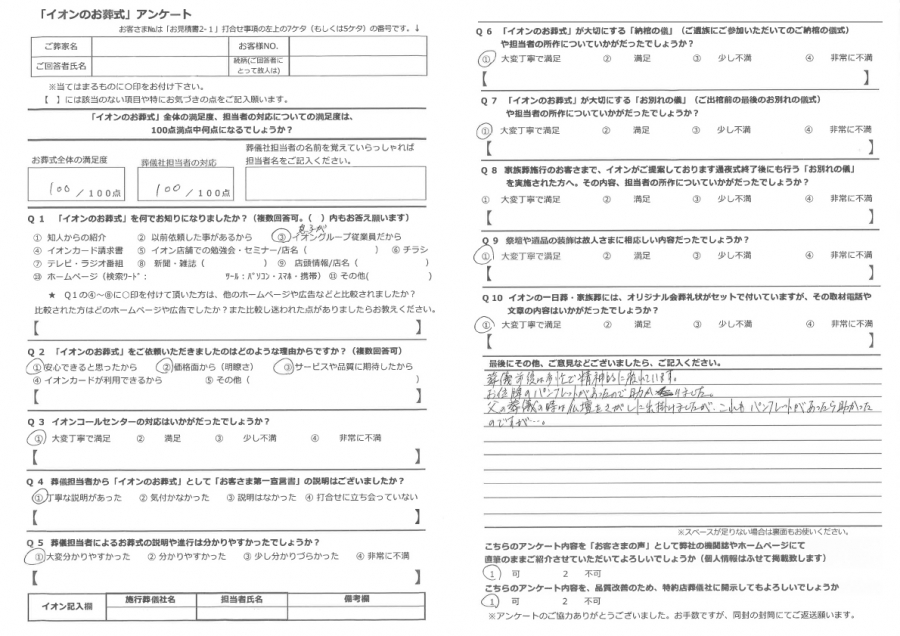 「イオンのお葬式」アンケート
お客さま№は「お見積書2-1」打合せ事項の左上の7ケタ（もしくは5ケタ）の番号です。↓
ご葬家名 お客様NO.
ご回答者氏名 続柄(ご回答者にとって故人は)
※当てはまるものに○印をお付け下さい。
【 】には該当のない項目や特にお気づきの点をご記入願います。
「イオンのお葬式」全体の満足度、担当者の対応についての満足度は、
100点満点中何点になるでしょうか？
お葬式全体の満足度 葬儀社担当者の対応 葬儀社担当者の名前を覚えていらっしゃれば
担当者名をご記入ください。
100 / 100点 100 / 100点
Q 1 「イオンのお葬式」を何でお知りになりましたか？（複数回答可。（ ）内もお答え願います）
① 知人からの紹介 ② 以前依頼した事があるから ③ イオングループ従業員だから
④ イオンカード請求書 ⑤ イオン店舗での勉強会・セミナー/店名（ ） ⑥ チラシ
⑦ テレビ・ラジオ番組 ⑧ 新聞・雑誌（ ） ⑨ 店頭情報/店名（ ）
⑩ ホームページ（検索ﾜｰﾄﾞ： ﾂｰﾙ：ﾊﾟｿｺﾝ・ｽﾏﾎ・携帯） ⑪ その他( )
★ Q1の④～⑩に○印を付けて頂いた方は、他のホームページや広告などと比較されましたか？
比較された方はどのホームページや広告でしたか？また比較し迷われた点がありましたらお教えください。
【 】
Q 2 「イオンのお葬式」をご依頼いただきましたのはどのような理由からですか？（複数回答可）
①安心できると思ったから ②価格面から（明瞭さ） ③サービスや品質に期待したから
④ イオンカードが利用できるから ⑤ その他（ ）
【 】
Q 3 イオンコールセンターの対応はいかがだったでしょうか？
① 大変丁寧で満足 ② 満足 ③ 少し不満 ④ 非常に不満
【 】
Q 4 葬儀担当者から「イオンのお葬式」として「お客さま第一宣言書」の説明はございましたか？
①丁寧な説明があった ② 気付かなかった ③ 説明はなかった ④ 打合せに立ち会っていない
【 】
Q 5 葬儀担当者によるお葬式の説明や進行は分かりやすかったでしょうか？
①大変分かりやすかった ② 分かりやすかった ③ 少し分かりづらかった ④ 非常に不満
【 】
イオン記入欄 施行葬儀社名 担当者氏名 備考欄
Q 6 「イオンのお葬式」が大切にする「納棺の儀」（ご遺族にご参加いただいてのご納棺の儀式）
や担当者の所作についていかがだったでしょうか？
① 大変丁寧で満足 ② 満足 ③ 少し不満 ④ 非常に不満
【 】
Q 7 「イオンのお葬式」が大切にする「お別れの儀」（ご出棺前の最後のお別れの儀式）
や担当者の所作についていかがだったでしょうか？
① 大変丁寧で満足 ② 満足 ③ 少し不満 ④ 非常に不満
【 】
Q 8 家族葬施行のお客さまで、イオンがご提案しております通夜式終了後にも行う「お別れの儀」
を実施された方へ。その内容、担当者の所作についていかがだったでしょうか？
① 大変丁寧で満足 ② 満足 ③ 少し不満 ④ 非常に不満
【 】
Q 9 祭壇や酒品の装飾は故人さまに相応しい内容だったでしょうか？
① 大変丁寧で満足 ② 満足 ③ 少し不満 ④ 非常に不満
【 】
Q 10 イオンの一日葬・家族葬には、オリジナル会葬礼状がセットで付いていますが、その取材電話や
文章の内容はいかがだったでしょうか？
① 大変丁寧で満足 ② 満足 ③ 少し不満 ④ 非常に不満
【 】
最後にその他、ご意見などございましたら、ご記入ください。
葬儀前後は多忙で精神的に疲れています。
お位牌のパンフレットがあったので助かりました。
父の葬儀の時は仏壇をさがしに出掛けましたが、これもパンフレットがあったら助かった
のですが…。
※スペースが足りない場合は裏面もお使いください。
こちらのアンケート内容を「お客さまの声」として弊社の機関誌やホームページにて
直筆のままご紹介させていただいてよろしいでしょうか（個人情報はふせて掲載致します）
1 可 2 不可
こちらのアンケート内容を、品質改善のため、特約店葬儀社に開示してもよろしいでしょうか
1 可 2 不可
※アンケートのご協力ありがとうございました。お手数ですが、同封の封筒にてご返送願います。